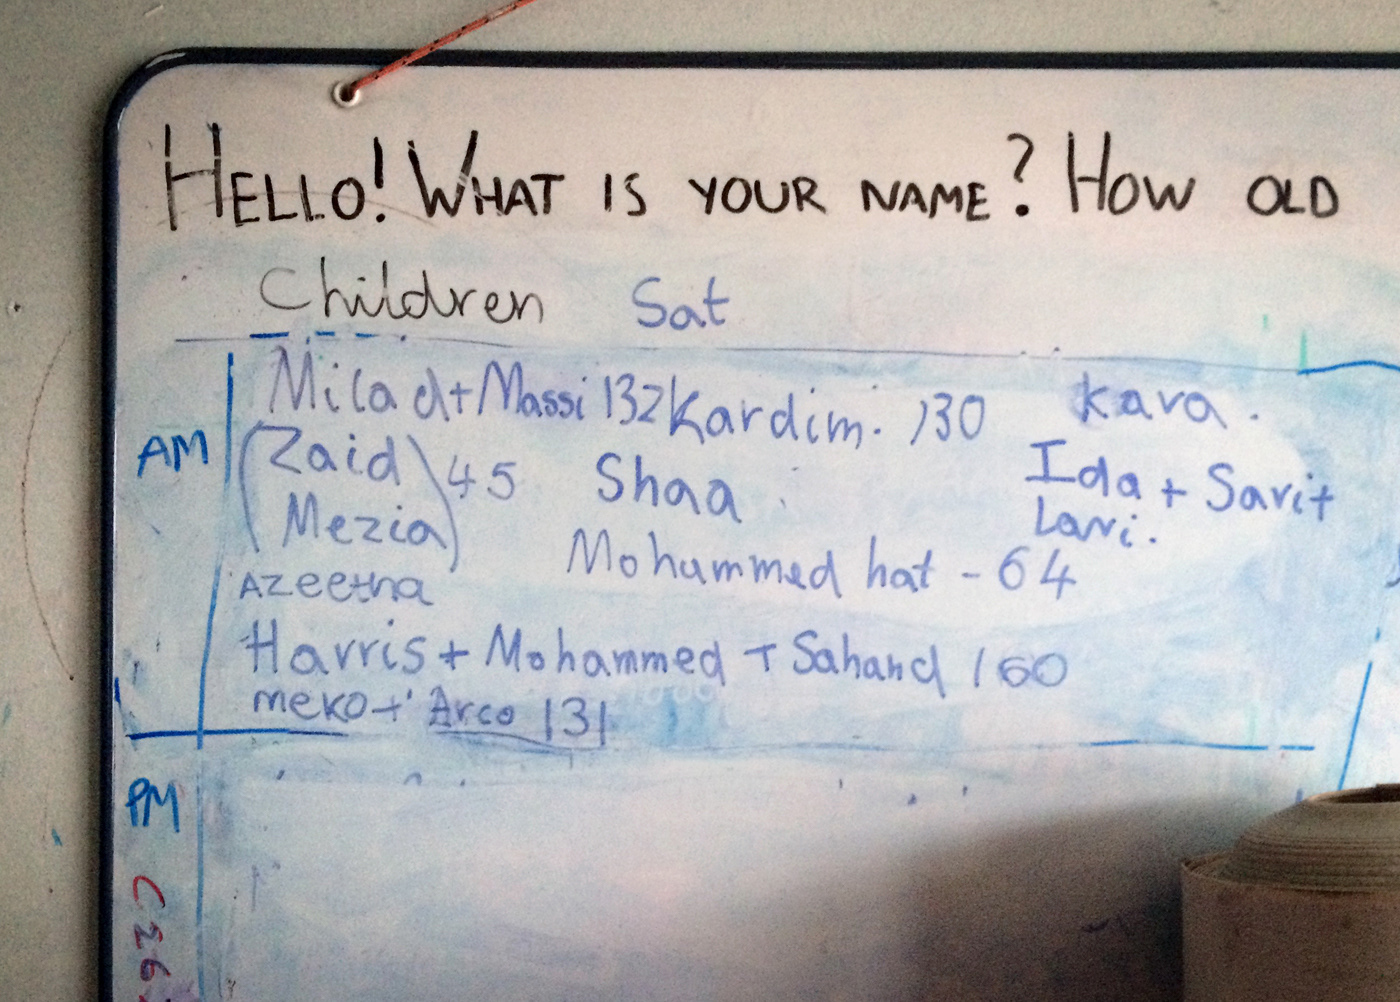 HELLO! WHAT IS YOUR NAME? HOW OLD
Children Sat
AM
Milad + Massi 132 Kardim. 130 Kava.
(Zaid) 45 Shaa Ida + Sari +
(Mezia) Lavi.
Mohammed hat - 64
Azeetna
Harris + Mohammed + Sahand 160
meko + Arco 131
PM